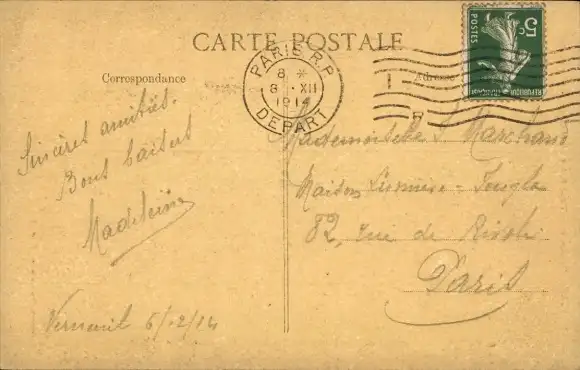 CARTE POSTALE
Correspondance
Adresse
PARIS R.P.
8 *
8 XII
1914
DEPART
5 c
POSTES
REPUBLIQUE FRANÇAISE
Sincères amitiés.
Bons baisers
Madeleine
Verneuil 5/12/14
Mademoiselle S. Marchand
Maison Lumière - Jougla
82, rue de Rivoli
Paris